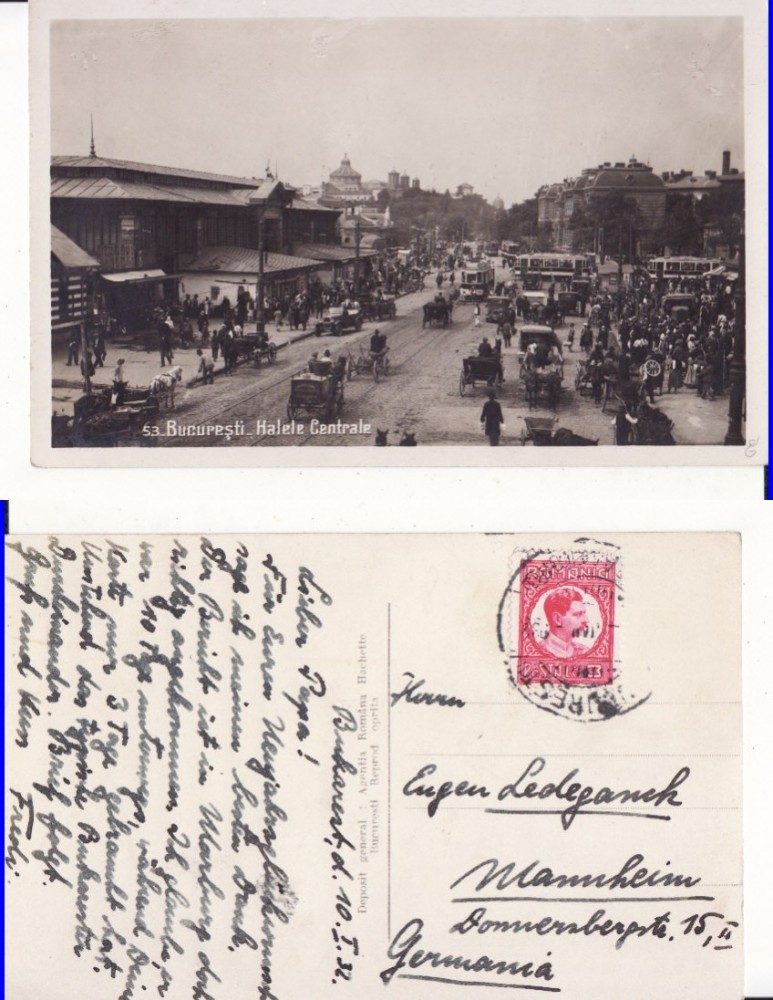 53_Bucureşti_Halele Centrale
Bukarest, d. 10. I. 32.
Lieber Papa!
Für Euren Neujahrsglückwunsch
sage ich meinen besten Dank.
Der Brief ist in Marburg doch
richtig angekommen. Ich glaube er
war 10 Tage unterwegs, während Deine
Karte nur 3 Tage gebraucht hat.
Umstand des
Brief folgt.
Gruß und Kuss
Fredi.
Deposit general: Agentia Româna Hachette
Bucuresti Reprod oprita
ROMANIA
Herrn
Eugen Ledeganck
Mannheim
Donnersbergstr. 15, II
Germania